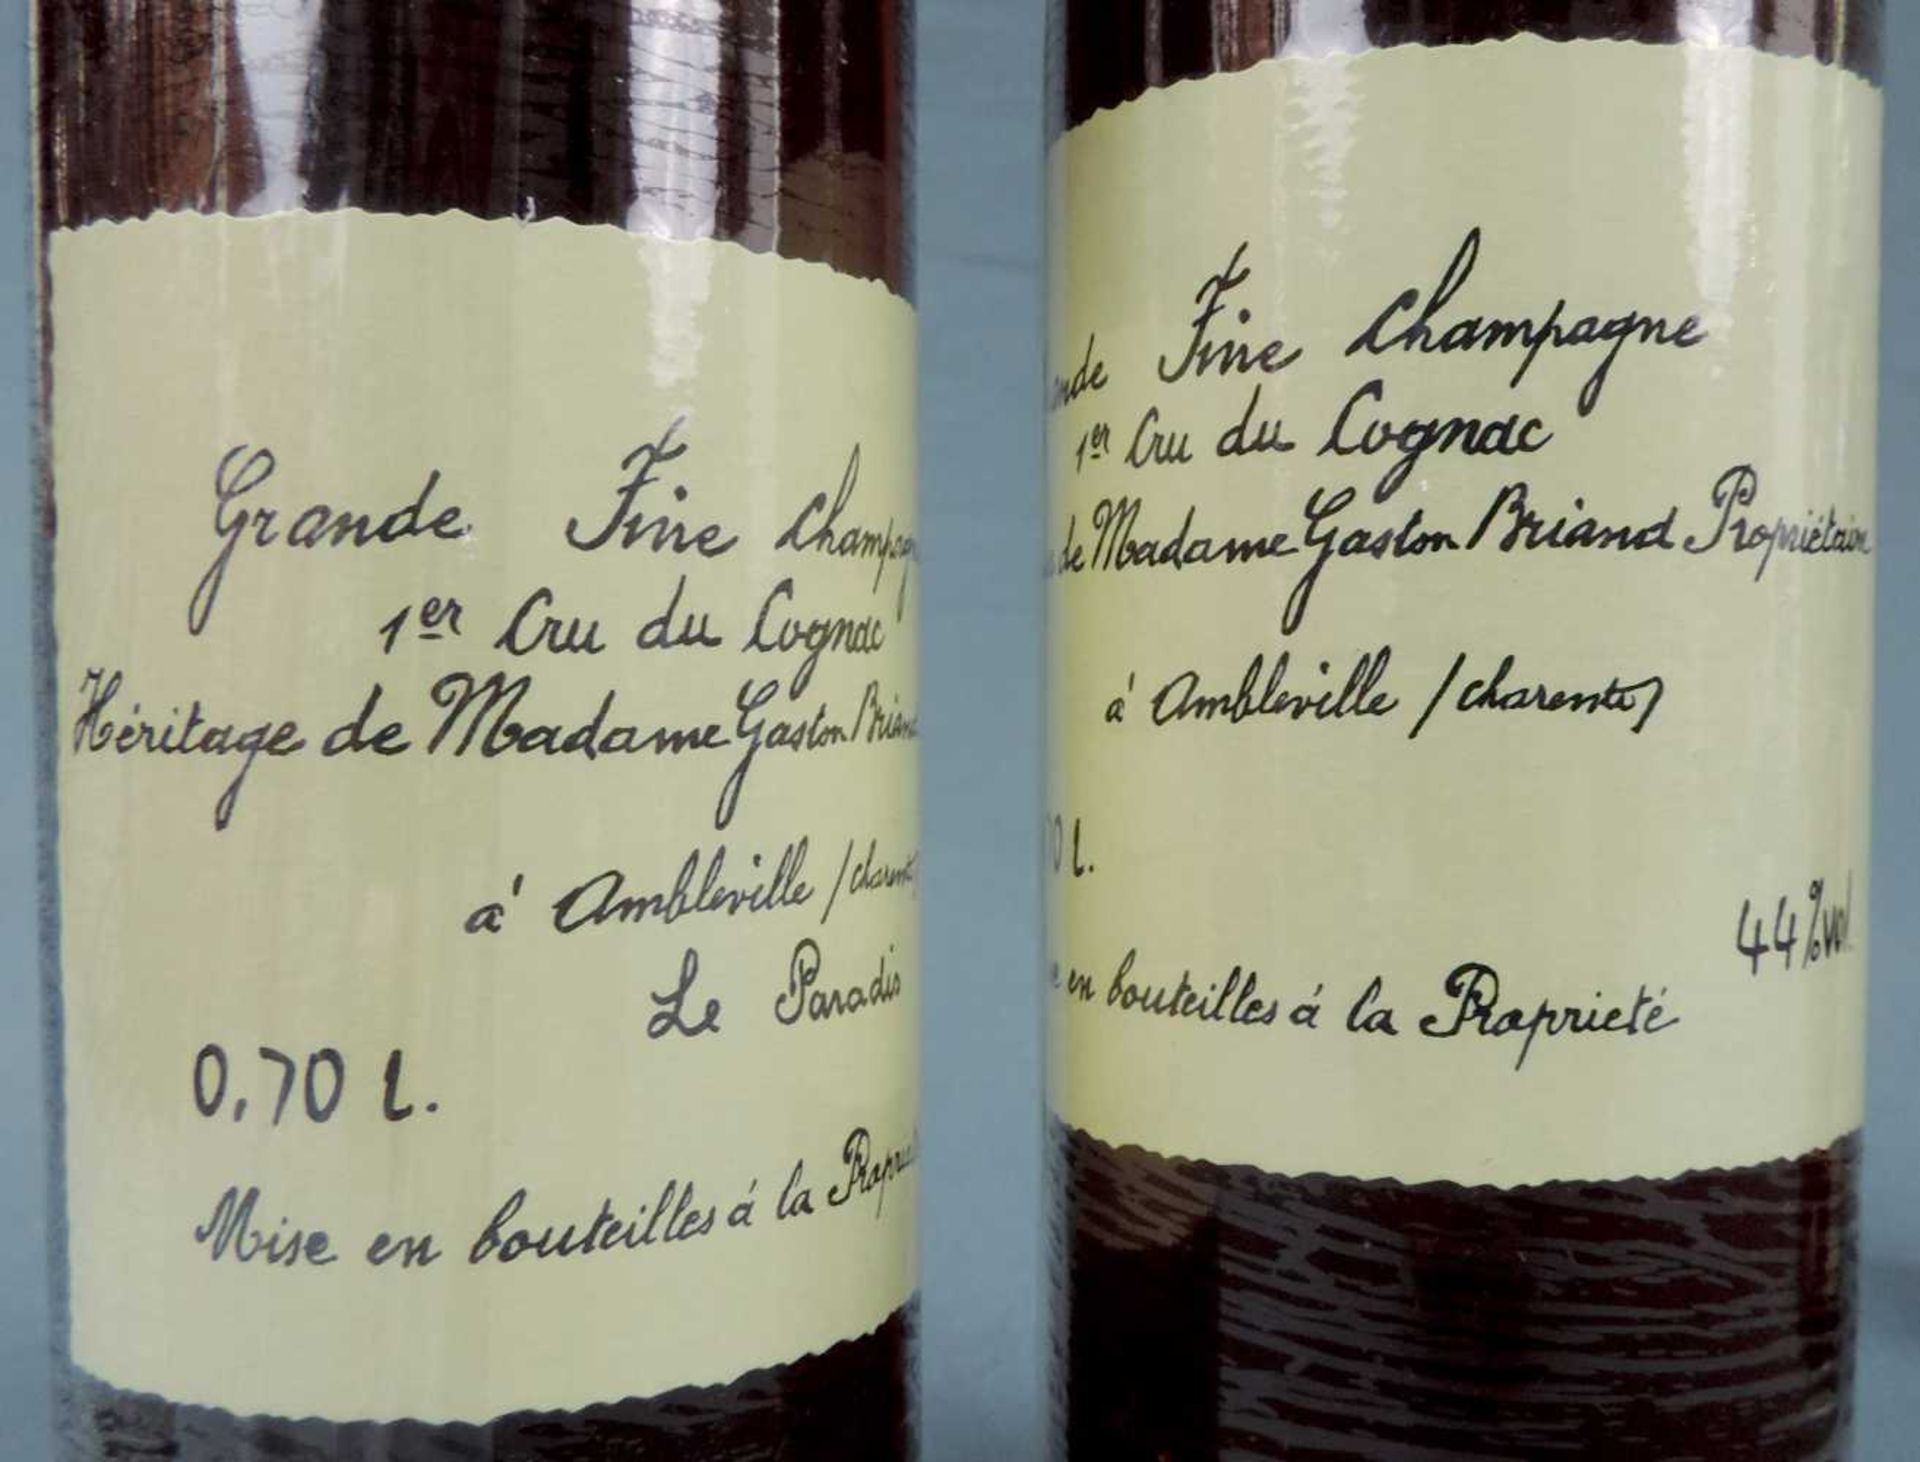 Grande Fine Champagne
1er Cru du Cognac
Héritage de Madame Gaston Briand
à Ambleville /Charente/
Le Paradis
0,70 l.
Mise en bouteilles á la Proprie
nde Fine Champagne
1er Cru du Cognac
de Madame Gaston Briand Propriétaire
à Ambleville /Charente/
0 l.
44%vol.
e en bouteilles á la Proprieté